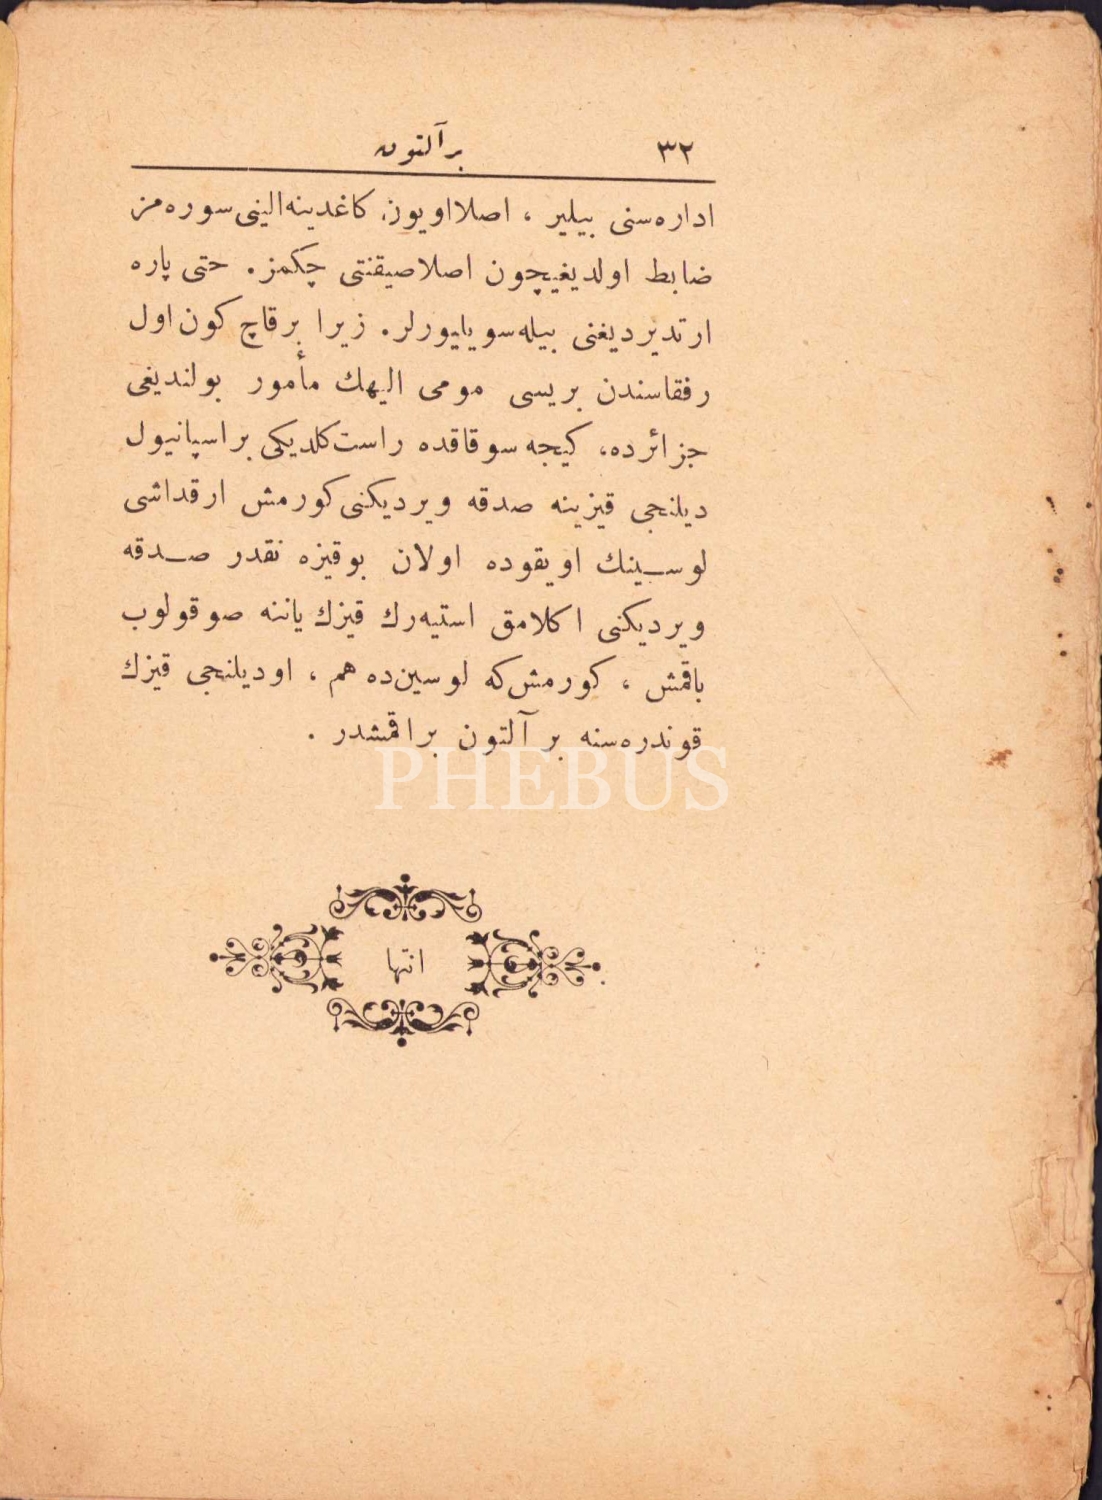 ٣٢
بر آلتون
اداره‌سنی بیلیر ، اصلا اویون کاغدینه الینی سوره‌مز
ضابط اولدیغیچون اصلا صیقنتی چکمز . حتی پاره
ارتدیردیغنی بیله سویلیورلر . زیرا بر قاچ کون اول
رفقاسندن بریسی مومی الیهك مأمور بولندیغی
جزائرده ، کیجه سوقاقده راست کلدیکی بر اسپانیول
دیلنجی قیزینه صدقه ویردیکنی کورمش ارقداشی
لوسینك اویقوده اولان بو قیزه نقدر صدقه
ویردیکنی اکلامق استیه‌رك قیزك یاننه صوقولوب
باقمش ، کورمش که لوسین ده هم ، او دیلنجی قیزك
قوندره‌سنه بر آلتون براقمشدر .
PHEBUS
انتها